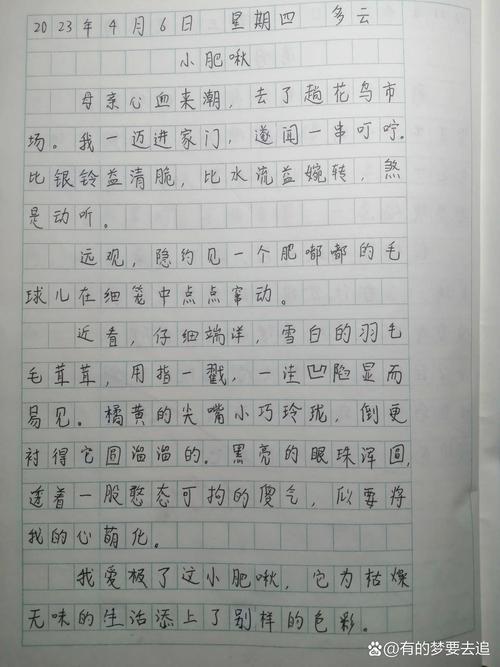 2023年4月6日 星期四 多云
小肥啾
母亲心血来潮，去了趟花鸟市
场。我一迈进家门，遂闻一串叮咛。
比银铃益清脆，比水流益婉转，煞
是动听。
远观，隐约见一个肥嘟嘟的毛
球儿在细笼中点点窜动。
近看，仔细端详，雪白的羽毛
毛茸茸，用指一戳，一洼凹陷显而
易见。橘黄的尖嘴小巧玲珑，倒更
衬得它圆溜溜的。黑亮的眼珠浑圆，
透着一股憨态可拘的傻气，似要将
我的心萌化。
我爱极了这小肥啾，它为枯燥
无味的生活添上了别样的色彩。
@有的梦要去追